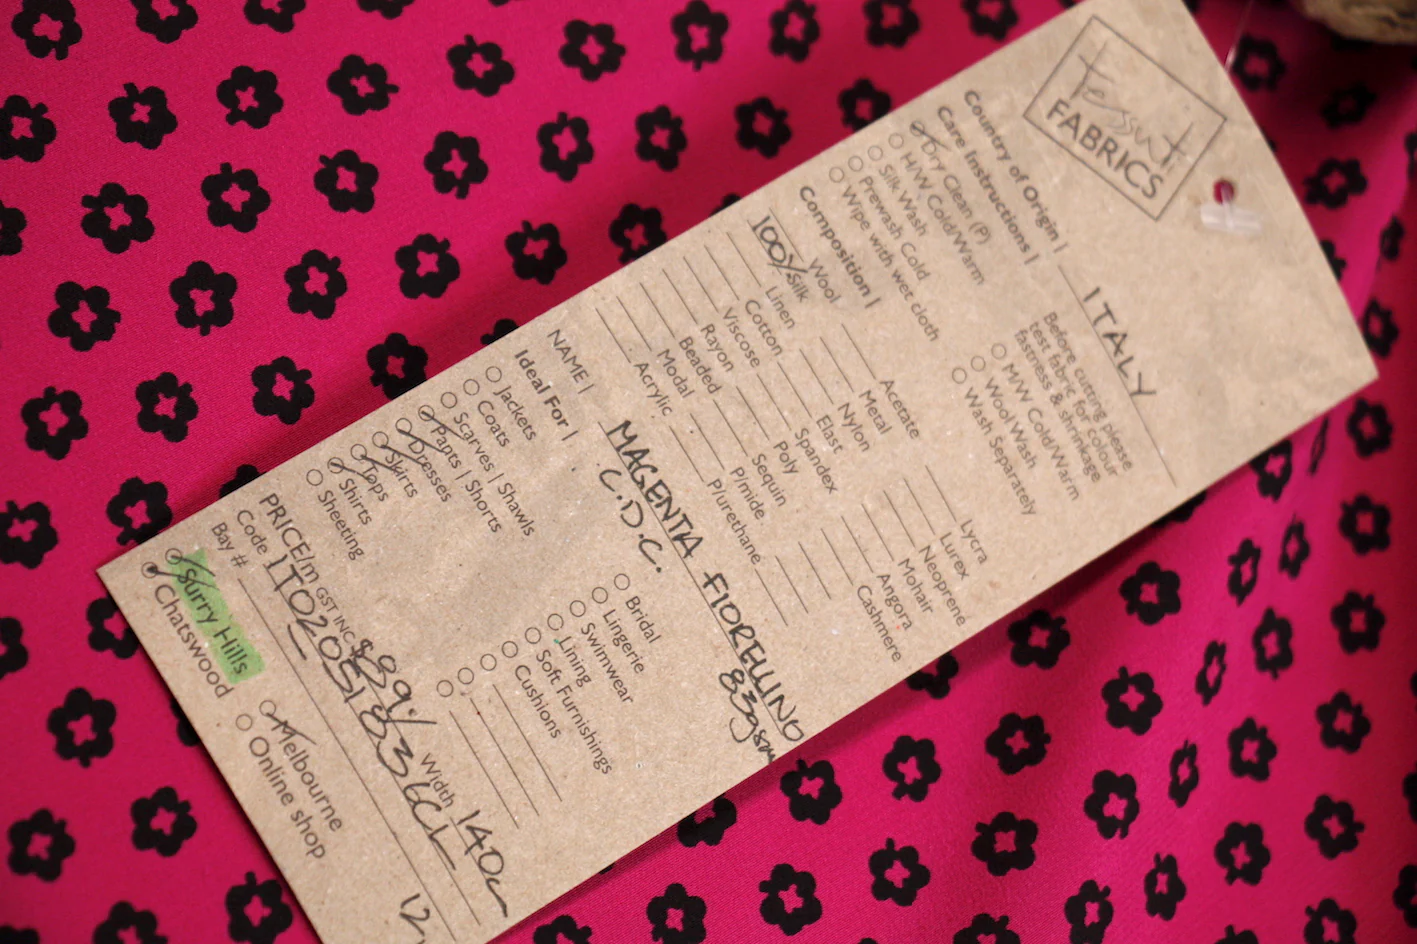 Tessuti
FABRICS
Country of Origin | ITALY
Care Instructions |
Dry Clean (P)
H/W Cold/Warm
Silk Wash
Prewash Cold
Wipe with wet cloth
Before cutting please
test fabric for colour
fastness & shrinkage
M/W Cold/Warm
Wool Wash
Wash Separately
Composition |
Wool
100% Silk
Linen
Cotton
Viscose
Rayon
Beaded
Modal
Acrylic
Acetate
Metal
Nylon
Elast
Spandex
Poly
Sequin
P/mide
P/urethane
Lycra
Lurex
Neoprene
Mohair
Angora
Cashmere
NAME | MAGENTA FIORELLINO
C.D.C. 83gsm
Ideal For |
Jackets
Coats
Scarves | Shawls
Pants | Shorts
Dresses
Skirts
Tops
Shirts
Sheeting
Bridal
Lingerie
Swimwear
Lining
Soft Furnishings
Cushions
PRICE/m GST INC $89 Width 140cm
Code
Bay # 12
Surry Hills
Chatswood
Melbourne
Online shop